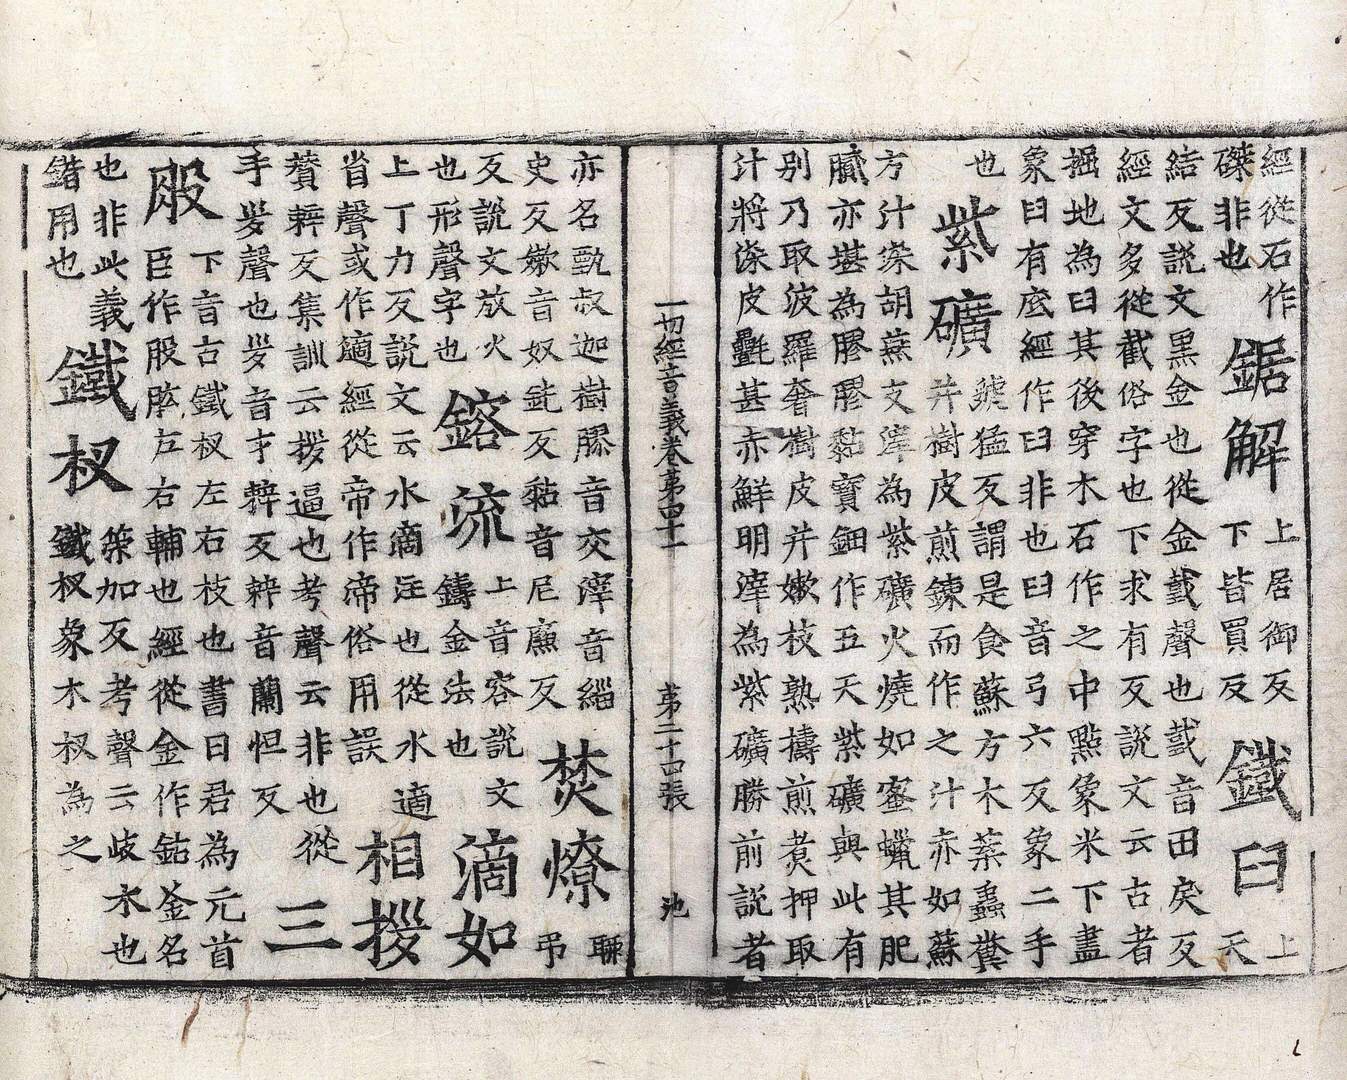 經從石作
磔非也
鋸解
上居御反
下皆買反
鐵臼
上
天
結反説文黑金也從金𢧜聲也𢧜音田戾反
經文多從截俗字也下求有反説文云古者
掘地為臼其後穿木石作之中點象米下盡
象臼有底經作臼非也臼音弓六反象二手
也
紫礦
虢猛反謂是食蘇方木葉蟲糞
并樹皮煎鍊而作之汁赤如蘇
方汁染胡燕文滓為紫礦火燒如蜜蠟其肥
膩亦堪為膠膠黏寶鈿作五天紫礦與此有
別乃取波羅奢樹皮并嫰枝熟擣煎煑押取
汁將染皮㲲甚赤鮮明滓為紫礦勝前説者
一切經音義卷第四十一 第二十四張 池
亦名甄叔迦樹膠音交滓音緇
史反嫰音奴鈍反黏音尼廉反
焚燎
聊
弔
反説文放火
也形聲字也
鎔流
上音容説文
鑄金法也
滴如
上丁力反説文云水滴注也從水適
省聲或作適經從帝作渧俗用誤
相拶
賛辢反集訓云拶逼也考聲云非也從
手𡿧聲也𡿧音才辢反辢音蘭怛反
三股
下音古鐵杈左右枝也書曰君為元首
臣作股肱左右輔也經從金作鈷釜名
也非此義
錯用也
鐵杈
策加反考聲云岐木也
鐵杈象木杈為之